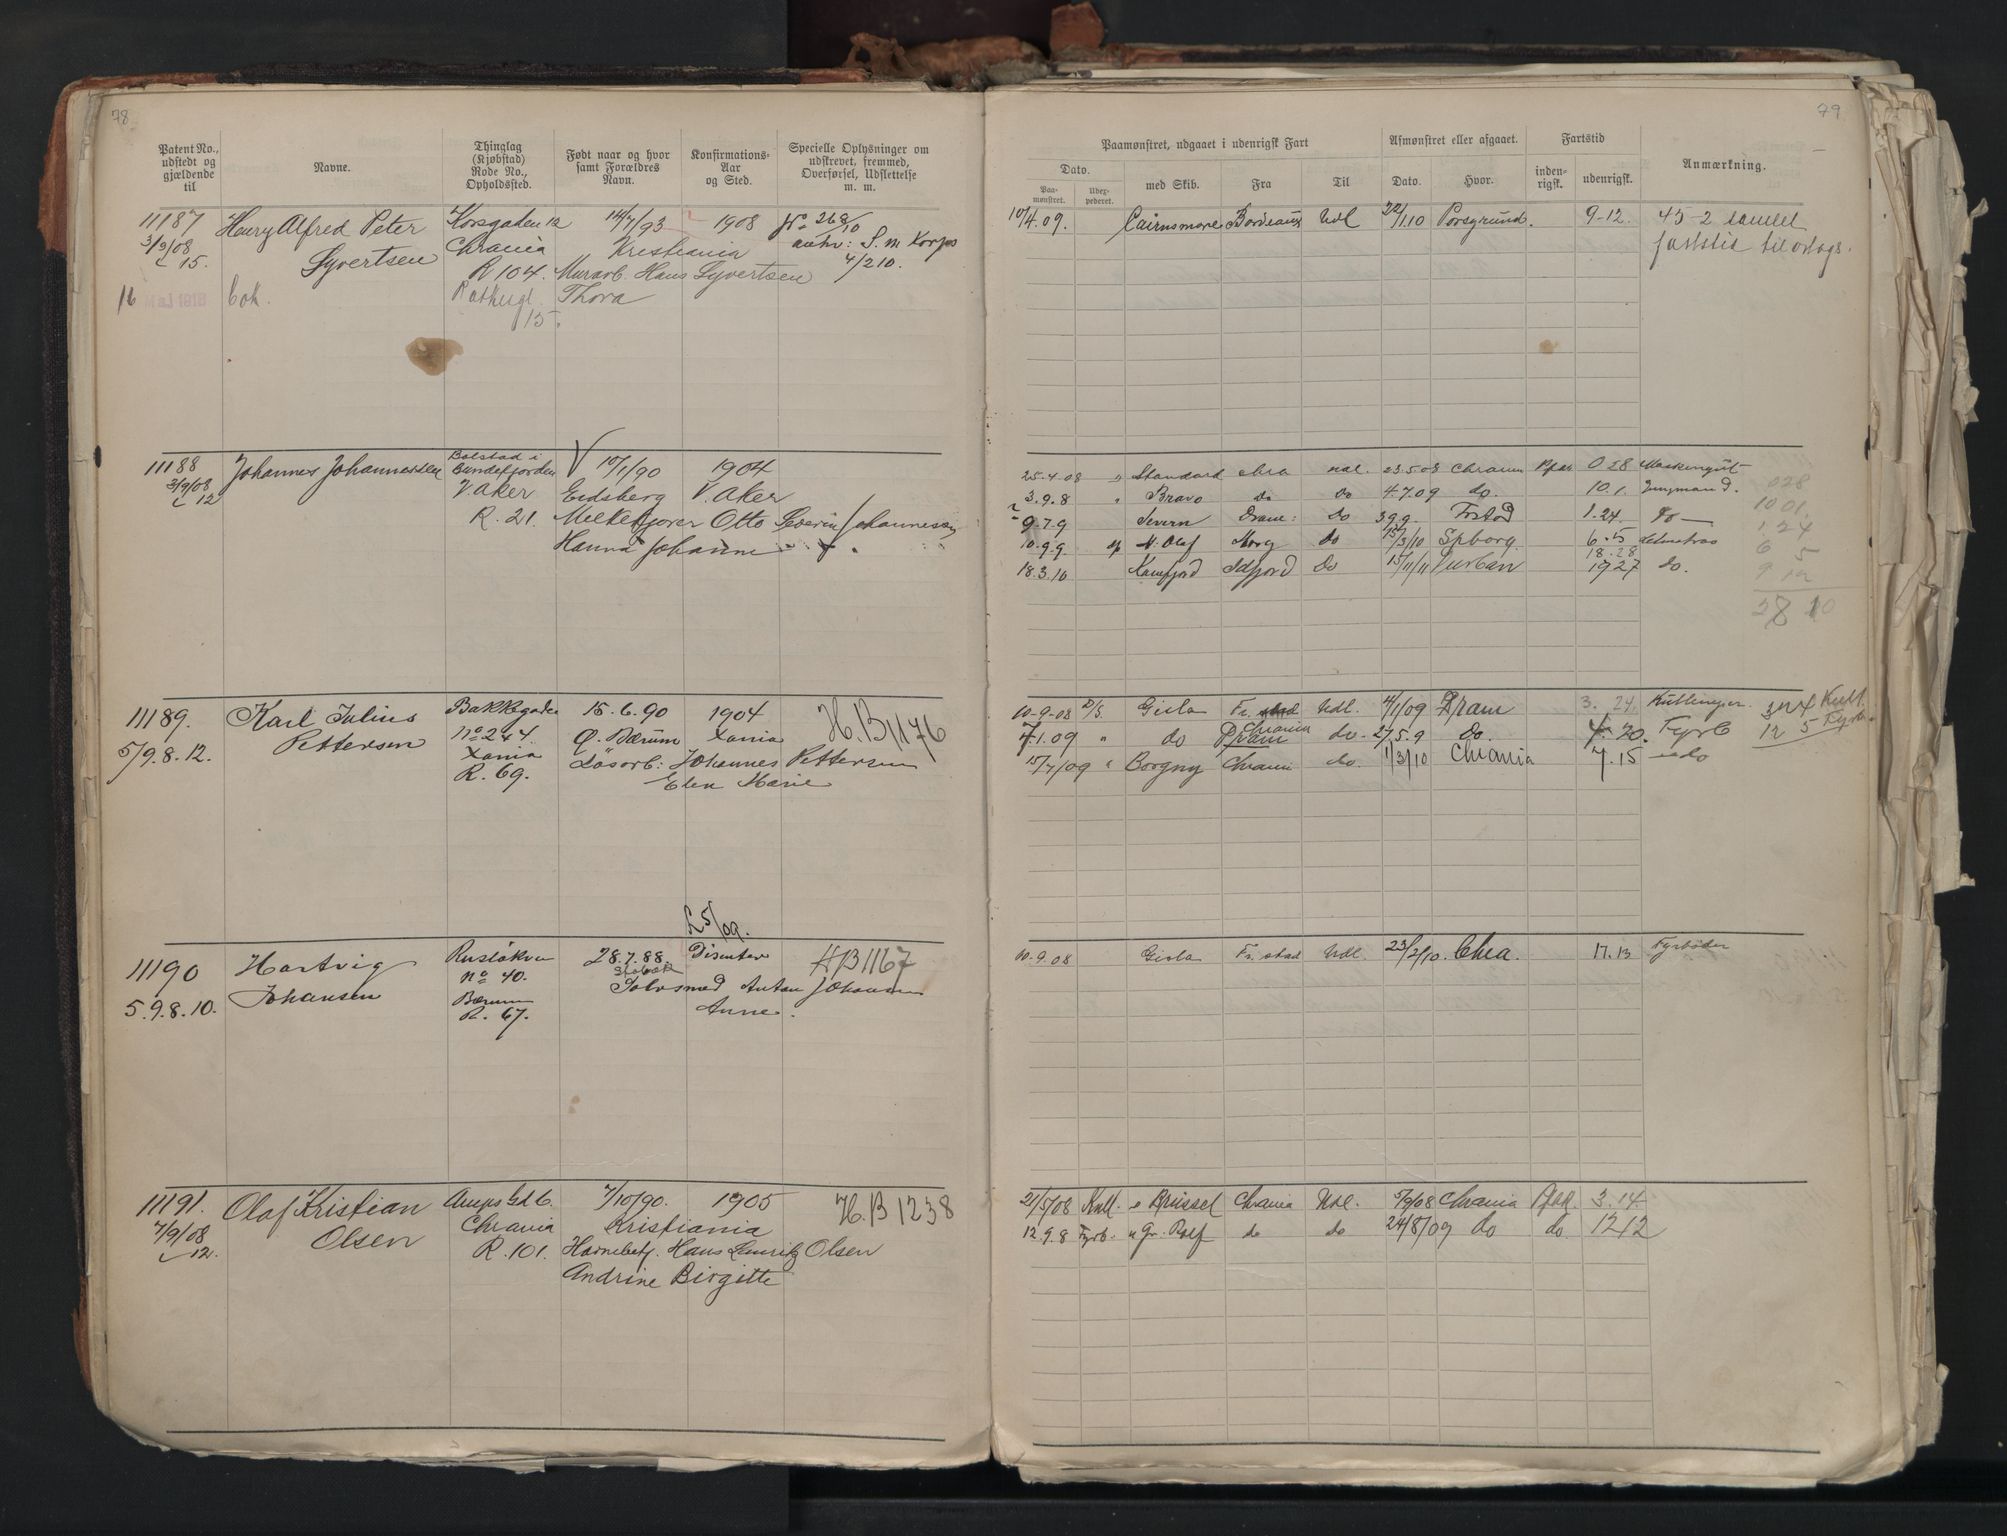 78
Patent No., udstedt og gjældende til
Navne.
Thinglag (Kjøbstad) Rode No., Opholdssted.
Født naar og hvor samt Forældres Navn.
Konfirmations-Aar og Sted.
Specielle Oplysninger om udskrevet, fremmed, Overførsel, Udslettelse m. m.
11187 Henry Alfred Peter Korsgaden 12 14/7/93 1908 No 268/10
3/9/08 Syvertsen Chrania Kristiania anh: S. m Korps
15. R 104. Murarb. Hans Syvertsen 4/210.
16 Maj 1918 bok. Thora
15.
11188 Johannes Johannessen Bolstad i Bundefjorden 10/1/90 1904
3/9/08 V. Aker Eidsberg V. Aker
12 R. 21. Melkekjører Otto Severin Johannessen
Hanna Johanne
11189. Karl Julius Bakkegaden 15.6.90 1904 H.B 1176
5/9.8.12. Pettersen No 244 Ø. Bærum Xania
Xania Løsarb: Johannes Pettersen
R. 69. Elen Marie
5/09.
11190 Hartvig 28.7.88. Disenter HB 1167
Johansen No 40. Anton Johansen
5.9.8.10. Bærum Anne.
R. 67.
11191. Olaf Kristian 7/10/90. 1905 H.B 1238
7/9/08 Olsen Chrania Kristiania
12. R. 101. Hans Lauritz Olsen
Andrine Birgitte
79
Paamønstret, udgaaet i udenrigsk Fart
Afmønstret eller afgaaet.
Fartstid
Anmærkning.
Dato.
Paa-mønstret.
Udex-pederet.
med Skib.
Fra
Til
Dato.
Hvor.
inden-rigsk.
udenrigsk.
10/4.09. Cairnsmore Bordeaux Udl 22/1.10 Porsgrund. 9-12. 45-2 samlet
fartstid til orlogs.
25.4.08 " Standard chra udl. 23.5.08 Chrania 0 28
3.9.8 " Bravo do do 4.7.09 do. 10.1. Jungmand. 028
9.7.9 Severn Dram: Do 3.9.9. Frstad 1.24. do 10 01.
10.9.9. St. Olaf do 13/3/10 Spborg. 6.5 1.24
18.28 6 5
18.3.10 Do 15/11/11 Durban 1927 do.
38 10
10.9.08 D/S. Gisla Fr.stad Udl. 4/1/09 Dram 3. 24. Kullemper. Kull.
7.1.09 " do Chrania do. 27/5.9 Do. 4.20. Fyrb 12 5 Fyrb
15/7/09 " Borgny Chrania do. 1/3/10 Chrania 7.15 do
10.9.08 Gisla Fr.stad Udl. 23/2/10. Chra. 17.13 Fyrbøder
21/5/08 Kull. " Brüssel Chrania Udl. 5/9/08 Chrania 3.14
12.9.8 Fyrb. " Gr. Rolf do do 24/8/09 do do. 12 12